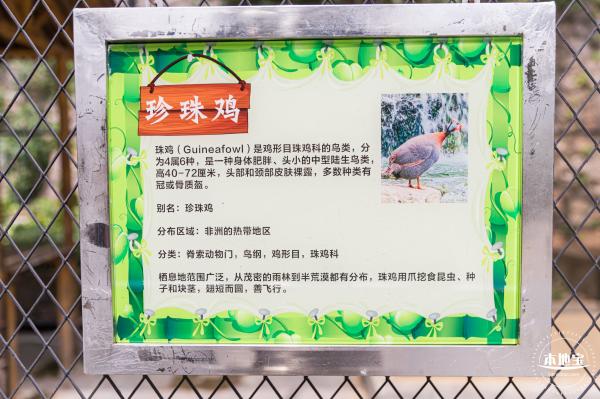 珍珠鸡
珠鸡（Guineafowl）是鸡形目珠鸡科的鸟类，分
为4属6种，是一种身体肥胖、头小的中型陆生鸟类，
高40-72厘米，头部和颈部皮肤裸露，多数种类有
冠或骨质盔。
别名：珍珠鸡
分布区域：非洲的热带地区
分类：脊索动物门，鸟纲，鸡形目，珠鸡科
栖息地范围广泛，从茂密的雨林到半荒漠都有分布，珠鸡用爪挖食昆虫、种
子和块茎，翅短而圆，善飞行。
本地宝